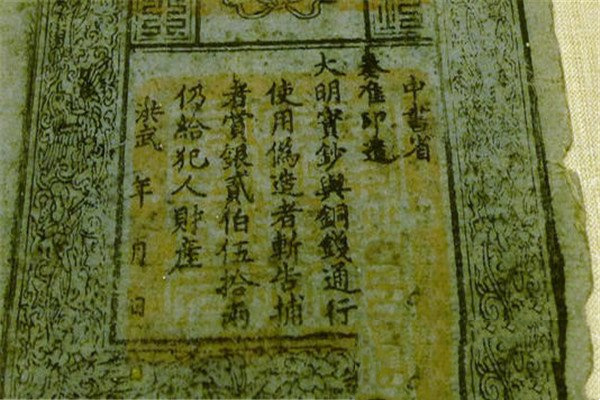 中書省
奏准印造
大明寳鈔與銅錢通行
使用偽造者斬告捕
者賞銀貳伯伍拾兩
仍給犯人財產
洪武 年 月 日